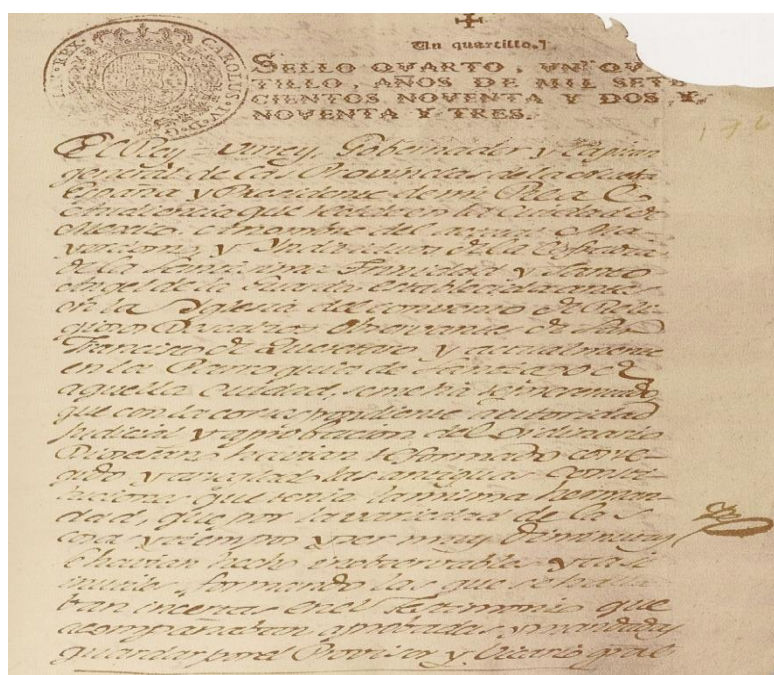 Un quartillo.
CAROLUS IV D. G. REX.
SELLO QVARTO, VN QV
TILLO, AÑOS DE MIL SETE
CIENTOS NOVENTA Y DOS Y
NOVENTA Y TRES.
176
El Rey Virrey, Gobernador y Capitan
general de las Provincias de la nueva
España y Presidente de mi Real
Audiencia que reside en la Ciudad de
Mexico. A nombre del actual Ma
yordomo, y Yndividuos de la Cofradia
de la Santisima Trinidad y Santo
Angel de la Guarda establecida antes
en la Yglesia del convento de Reli
giosos Descalzos Observantes de San
Francisco de Queretaro y actualmente
en la Parroquia de Santiago de
aquella Ciudad, se me ha representado
que con la correspondiente autoridad
Judicial y aprobacion del Ordinario
Diocesano havian reformado corre
gido y variado las antiguas Consti
tuciones que tenia la misma herman
dad, que por la variedad de la
cosa y tiempo y ser muy diminutas
se havian hecho inobservables y casi
inutiles, formando las que se halla
ban incertas en el Testimonio que
acompañaban aprobadas y mandadas
guardar por el Provisor y Vicario gral